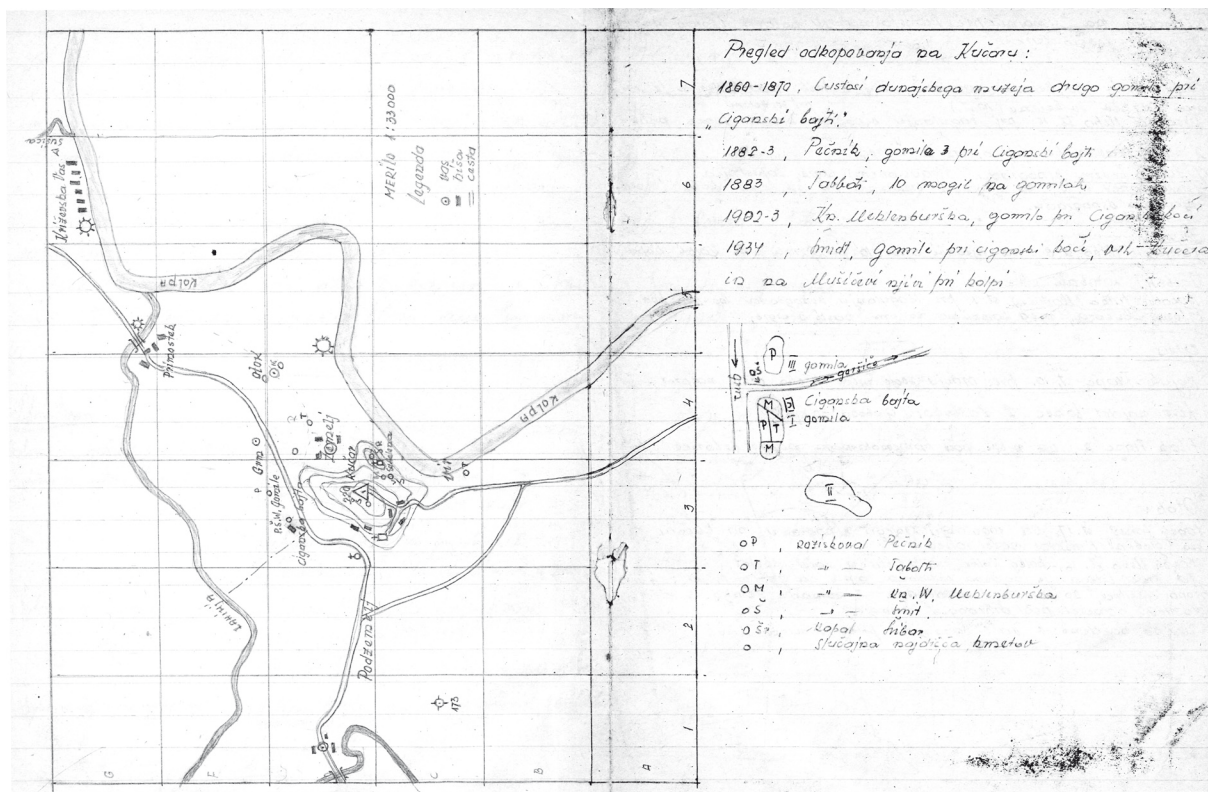 Pregled odkopovanja na Kučaru:
1860-1870, Custosi dunajskega muzeja drugo gomilo pri
"Ciganski bajti."
1882-3, Pečnik, gomila 3 pri Ciganski bajti
1883, Tabboti, 10 mogil na gomilah
1902-3, Kn. Meklenburška, gomilo pri Ciganski
1934, Šmidt, gomile pri ciganski, vrh Kučera
in na Mušičevi njivi pri kolpi
P
III gomila
M
Ciganska bajta
P T
I gomila
M
II
o P, raziskoval Pečnik
o T, -"- Tabotti
o M, -"- Kn. W. Meklenburška
o Š, -"- Šmit
o Šr, kopal Šribar
o, Slučajna najdišča kmetov
MERILO 1:33000
Legenda
vas
hiša
cesta
Sušica
Križevska Vas
KOLPA
Primostek
OTOK
Grm
Zemelj
Kučar
220
P.Š.W. gomile
Ciganska bajta
KOLPA
Podzemelj
173
1 2 3 4 5 6 7
G F C B A